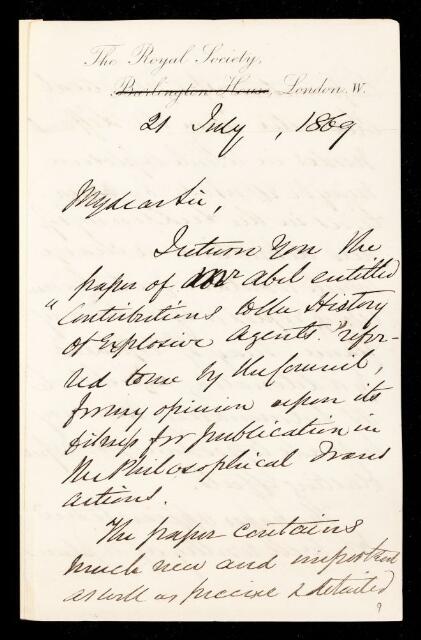 The Royal Society,
Burlington House, London. W.
21 July, 1869
My dear Sir,
I return you the
paper of Mr Abel entitled
"Contributions to the History
of Explosive Agents." refer-
red to me by the Council,
for my opinion upon its
fitness for publication in
the Philosophical Trans
actions.
The paper contains
much new and important
as well as precise & detailed